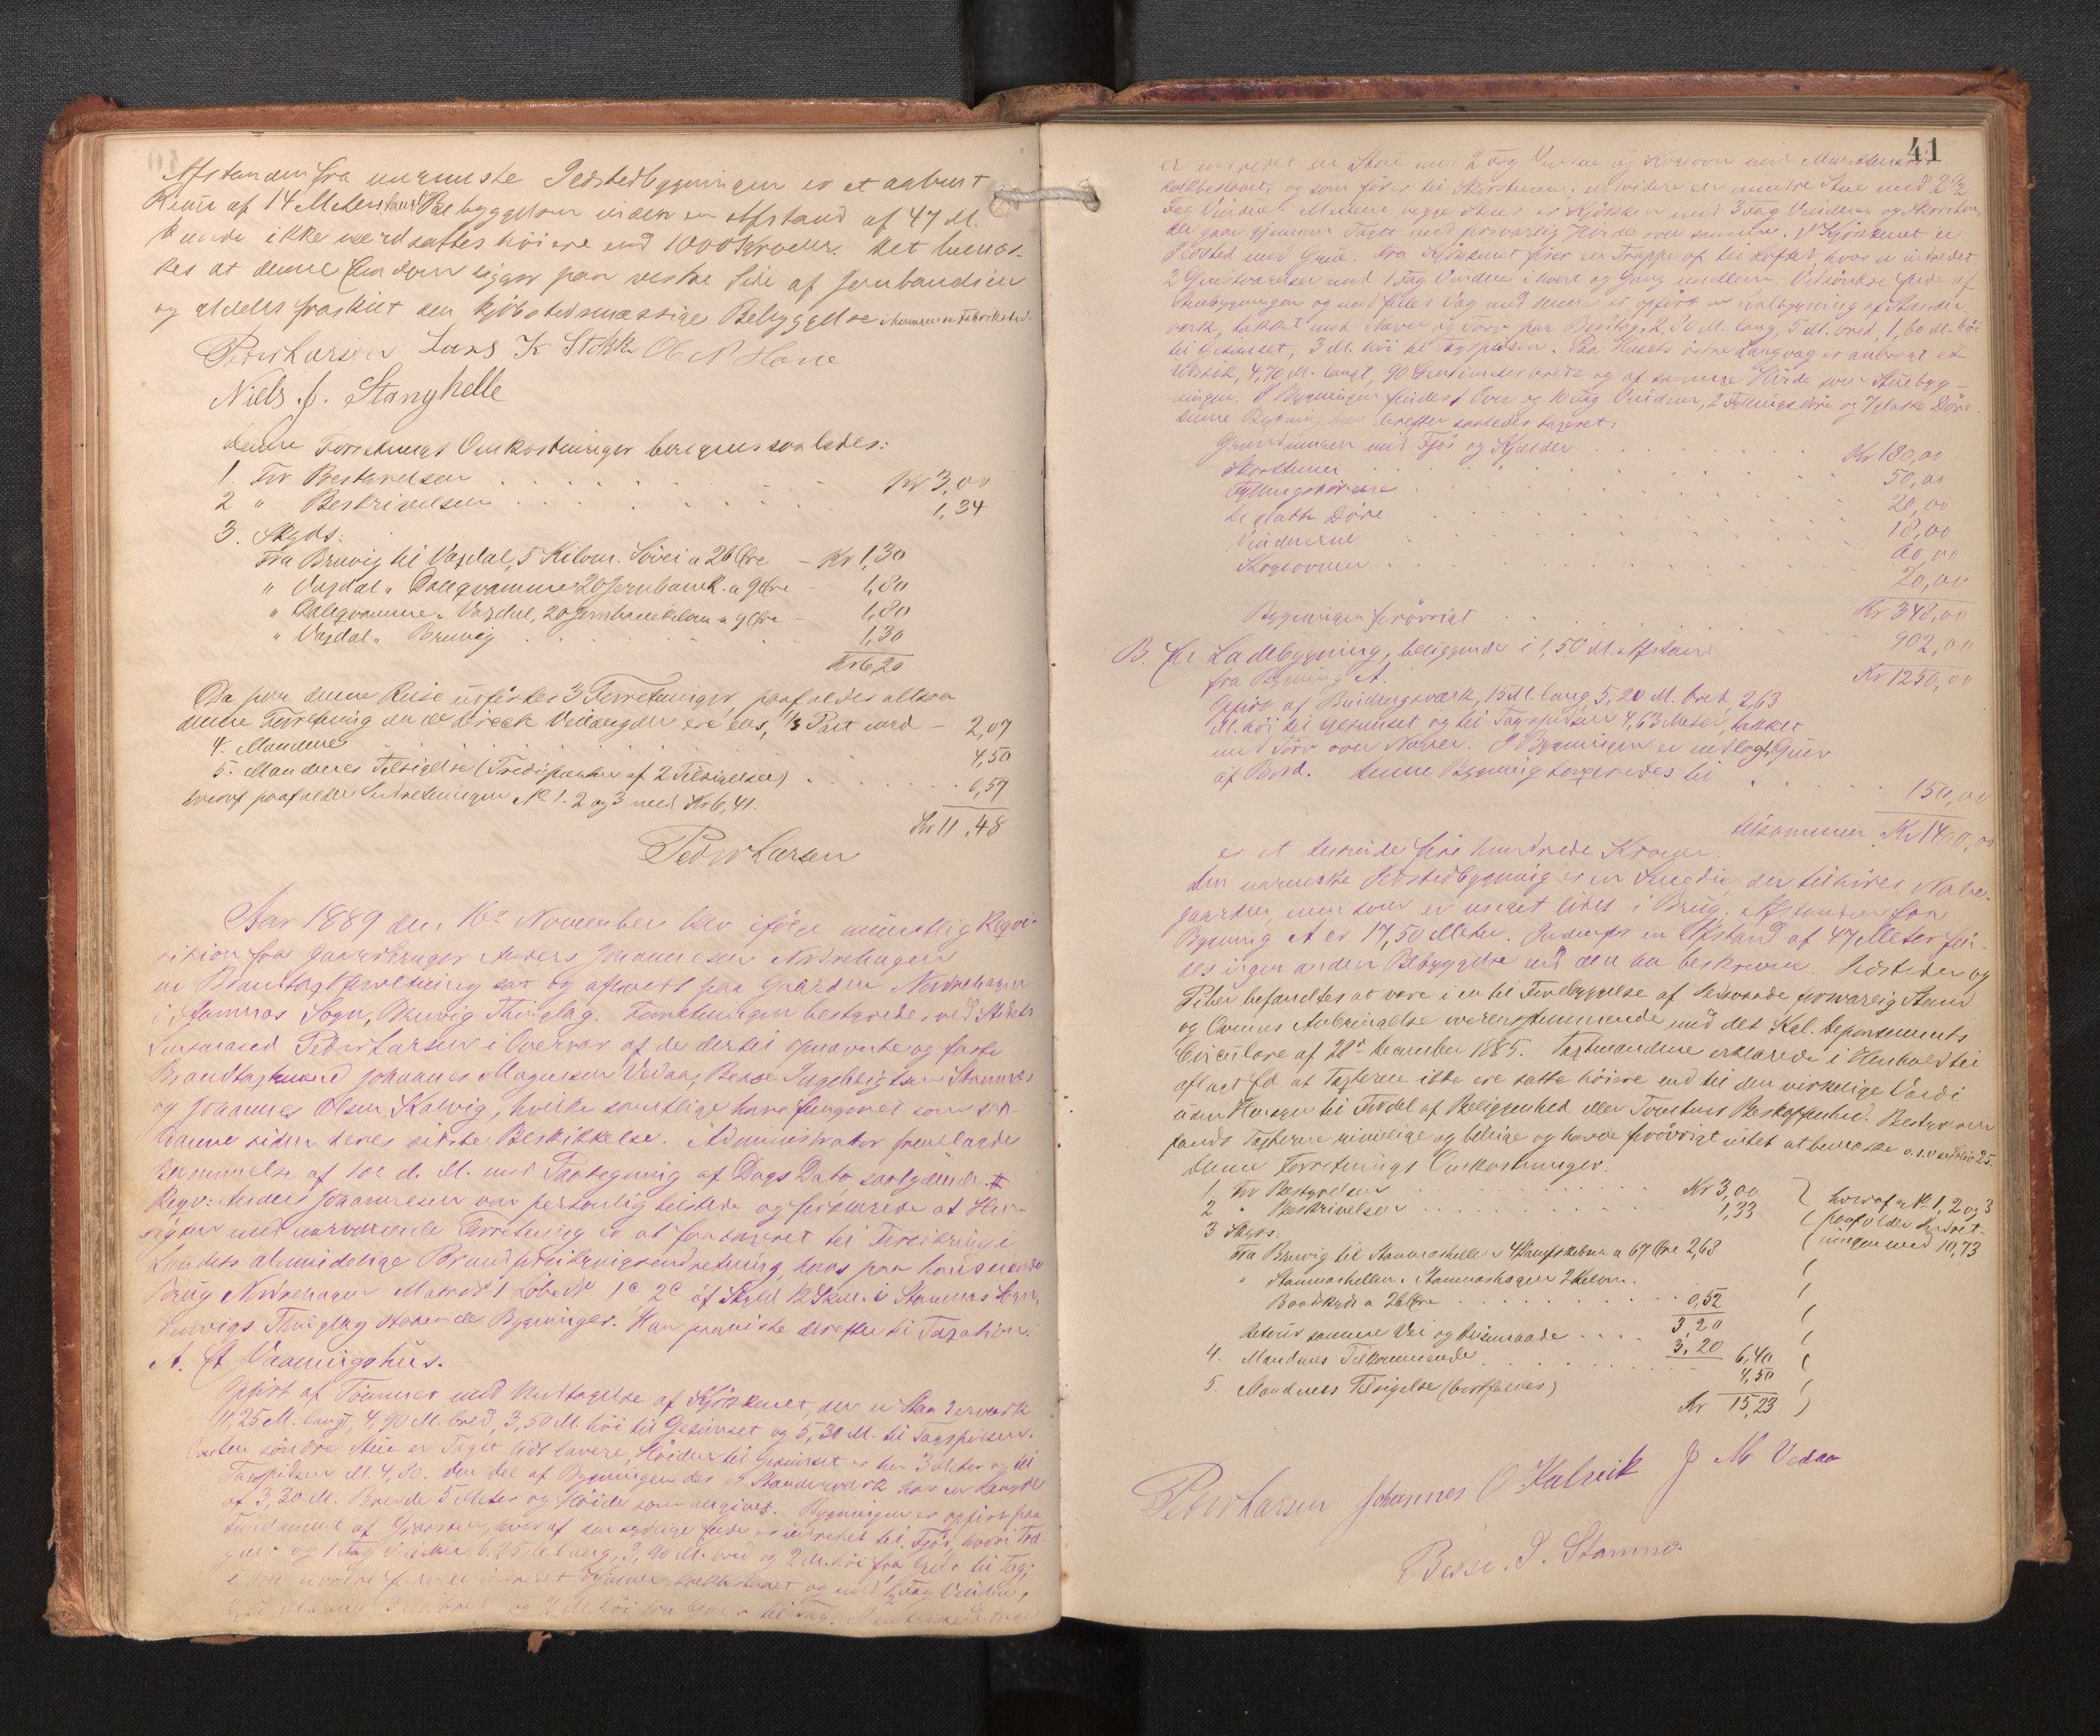 Afstanden fra nærmeste Ildstedbygningen er et aabent
Rum af 14 Meter samt Bebyggelsen inden en Afstand af 47 M.
kunde ikke værdsattes höiere end 1000 Kroner. Det bemær-
kes at denne Eiendom ligger paa vestre Side af Jernbanelinien
og aldeles fraskilt den kjöbstedsmæssige Bebyggelse
Peder Larsen Lars K Stokke Ole N Hove
Niels J. Stanghelle
denne Forretnings Omkostninger beregnes saaledes:
1 For Bestyrelsen Kr 3,00
2 " Beskrivelsen 1,34
3. Skyds:
Fra Bruvig til Vaxdal, 5 Kilom. Sövei a 26 Øre - Kr 1,30
" Vaxdal " Dalegvamme 20 Jernbanek. a 9 Øre - 1,80
" Dalegvamme " Vaxdal, 20 Jernbanekilom a 9 Øre - 1,80
" Vaxdal " Bruvig 1,30
Kr 6,20
Da paa denne Reise udförtes 3 Forretninger, paafaldes altsaa
denne Forretning da de direkte Veilængder ere ens, 1/3 Part med - 2,07
4. Mændene 4,50
5. Mændenes Tilsigelse (Trediparten af 2 Tilsigelser) 0,57
hvoraf paafalder Indretningen No 1. 2 og 3 med Kr 6,41.
Kr 11,48
Peder Larsen
Aar 1889 den 16de November blev ifölge mundtlig Rekvi-
sition fra Gaardbruger Anders Johannesen Nordrehagen
en Brandtaxtforretning sat og afholdt paa Gaarden Nordrehagen
i Stamnes Sogn, Bruvig Thinglag. Forretningen bestyredes ved Stedets
Lensmand Peder Larsen i Overvær af de dertil opnævnte og faste
Brandtaxtmænd Johannes Magnesen Vedaa, Besse Ingebrigtsen Stamnes
og Johannes Olsen Kalvig, hvilke samtlige have fungeret som saa-
danne siden deres sidste Beskikkelse. Administrator fremlagde
Berammelse af 10e d. M. med Paategning af Dags Dato, saalydende. #
Reqv: Anders Johannesen var personlig tilstede og forklarede at Hen-
sigten med nærværende Forretning er at faa taxeret til Forsikring i
Landets almindelige Brandforsikringsindretning, hans paa hans eiende
Brug Nordrehagen Matr. No 1 Löbe No 1c 2c af Skyld 12 Skill. i Stamnes Sogn,
Bruvigs Thinglag staaende Bygninger. Han paaviste derefter til Taxation:
A. Et Vaaningshus.
Opfört af Tömmer med Undtagelse af Kjökkenet, der er Standerværk
11,25 M. langt, 4,90 M. bred, 3,50 M. höi til Gesimset og 5,30 M. til Tagspidsen.
Over den söndre Stue er Taget lidt lavere, Höiden til Gesimset er her 3 Meter og til
Tagspidsen M. 4,80. Den Del af Bygningen der er Standerværk har en Længde
af 3,30 M. Bredde 5 Meter og Höide som angivet. Bygningen er opfört paa
Fundament af Graasten, hvoraf den sydlige Ende er indrettet til Fjös, hvori Træ-
gulv og 1 Fag Vindue, 6,25 M. lang, 3,90 M. bred og 2 M. höi fra Gulv til Tag;
i den nordre Ende er indrettet Kjelder, og med 1/2 Fag Vindue,
og 2 M. höi fra Gulv til Tag.
41
er indredet en Stue med 2 Fag Vinduer og Kogeovn med
og som förer til Skorstenen; endvidere en mindre Stue med 2 1/2
Fag Vinduer. Mellem begge Stuer er Kjökken med 3 Fag Vinduer og Skorsten,
der gaar gjennem Taget med forsvarlig Höide over samme. I Kjökkenet er
Ildsted med Grue. Fra Kjökkenet förer en Trappe op til Loftet, hvor er indredet
2 Værelser med 1 Fag Vindue i hvert og Gang imellem. Ved söndre Ende af
Stuebygningen og med fælles Væg med denne er opfört en af Stander-
værk, tækket med Næver og Torv paa Bordtag, 2,20 M. lang, 5 M. bred, 1,60 M. höi
til Gesimset, 3 M. höi til Tagspidsen. Paa Husets östre Langvæg er anbragt et
Udstik, 4,70 M. langt, 90 Centimeter bredt og af samme Höide som Stuebyg-
ningen. I Bygningen findes 1 Ovn og 10 Fag Vinduer, 2 Fyllingsdöre og 7 glatte Döre.
Denne Bygning blev derefter saaledes taxeret:
Grundmuren med Fjös og Kjælder Kr 180,00
Skorstenen 50,00
Fyllingsdörene 20,00
De glatte Döre 18,00
Vinduerne 60,00
Kogeovnen 20,00
Kr 348,00
Bygningen forövrigt 902,00
Kr 1250,00
B. En Ladebygning, beliggende i 1,50 M. Afstand
fra Bygning A.
Opfört af Bindingsværk, 15 M. lang, 5,20 M. bred, 2,63
M. höi til Gesimset og til Tagspidsen 4,63 Meter, tækket
med Torv over Næver. I Bygningen er indlagt Gulv
af Bord. Denne Bygning taxeredes til 150,00
tilsammen Kr 1400,00
er et Tusinde fire hundrede Kroner.
Den nærmeste Ildstedbygning er en Smedie, der tilhörer Nabo-
gaarden, men som er meget lidet i Brug. Afstanden fra
Bygning A er 17,50 Meter. Indenfor en Afstand af 47 Meter fin-
des ingen anden Bebyggelse end den nu beskrevne. Ildsteder og
Piber befandtes at være i en til Forebyggelse af Ildsvaade forsvarlig Stand
og Ovnens Anbringelse overensstemmende med det Kgl. Departements
Circulære af 28de December 1885. Taxtmændene erklærede i Henhold til
aflagt Ed at Taxterne ikke ere satte höiere end til den virkelige Værdi
uden Hensyn til Fordel af Beliggenhed eller Tomtens Beskaffenhed. Bestyreren
fandt Taxterne rimelige og billige og havde forövrigt intet at bemærke
Denne Forretnings Omkostninger.
1. For Bestyrelsen Kr 3,00
2 " Beskrivelsen 1,33
hvoraf No 1, 2 og 3
paafalder Indret-
ningen med 10,73
3 Skyds:
Fra Bruvig til Stamneshellen 4 Dampskibsm a 67 Øre 2,68
" Stamneshellen " Stamneshagen 2 Kilom.
Baadskyds a 26 Øre 0,52
3,20
Retour samme Vei og Reisemaade 3,20 6,40
4. Mændenes Tilkommende 4,50
5. Mændenes Tilsigelse (bortfaldes)
Kr 15,23
Peder Larsen Johannes O Kalvik J M Vedaa
Besse. I. Stamnes